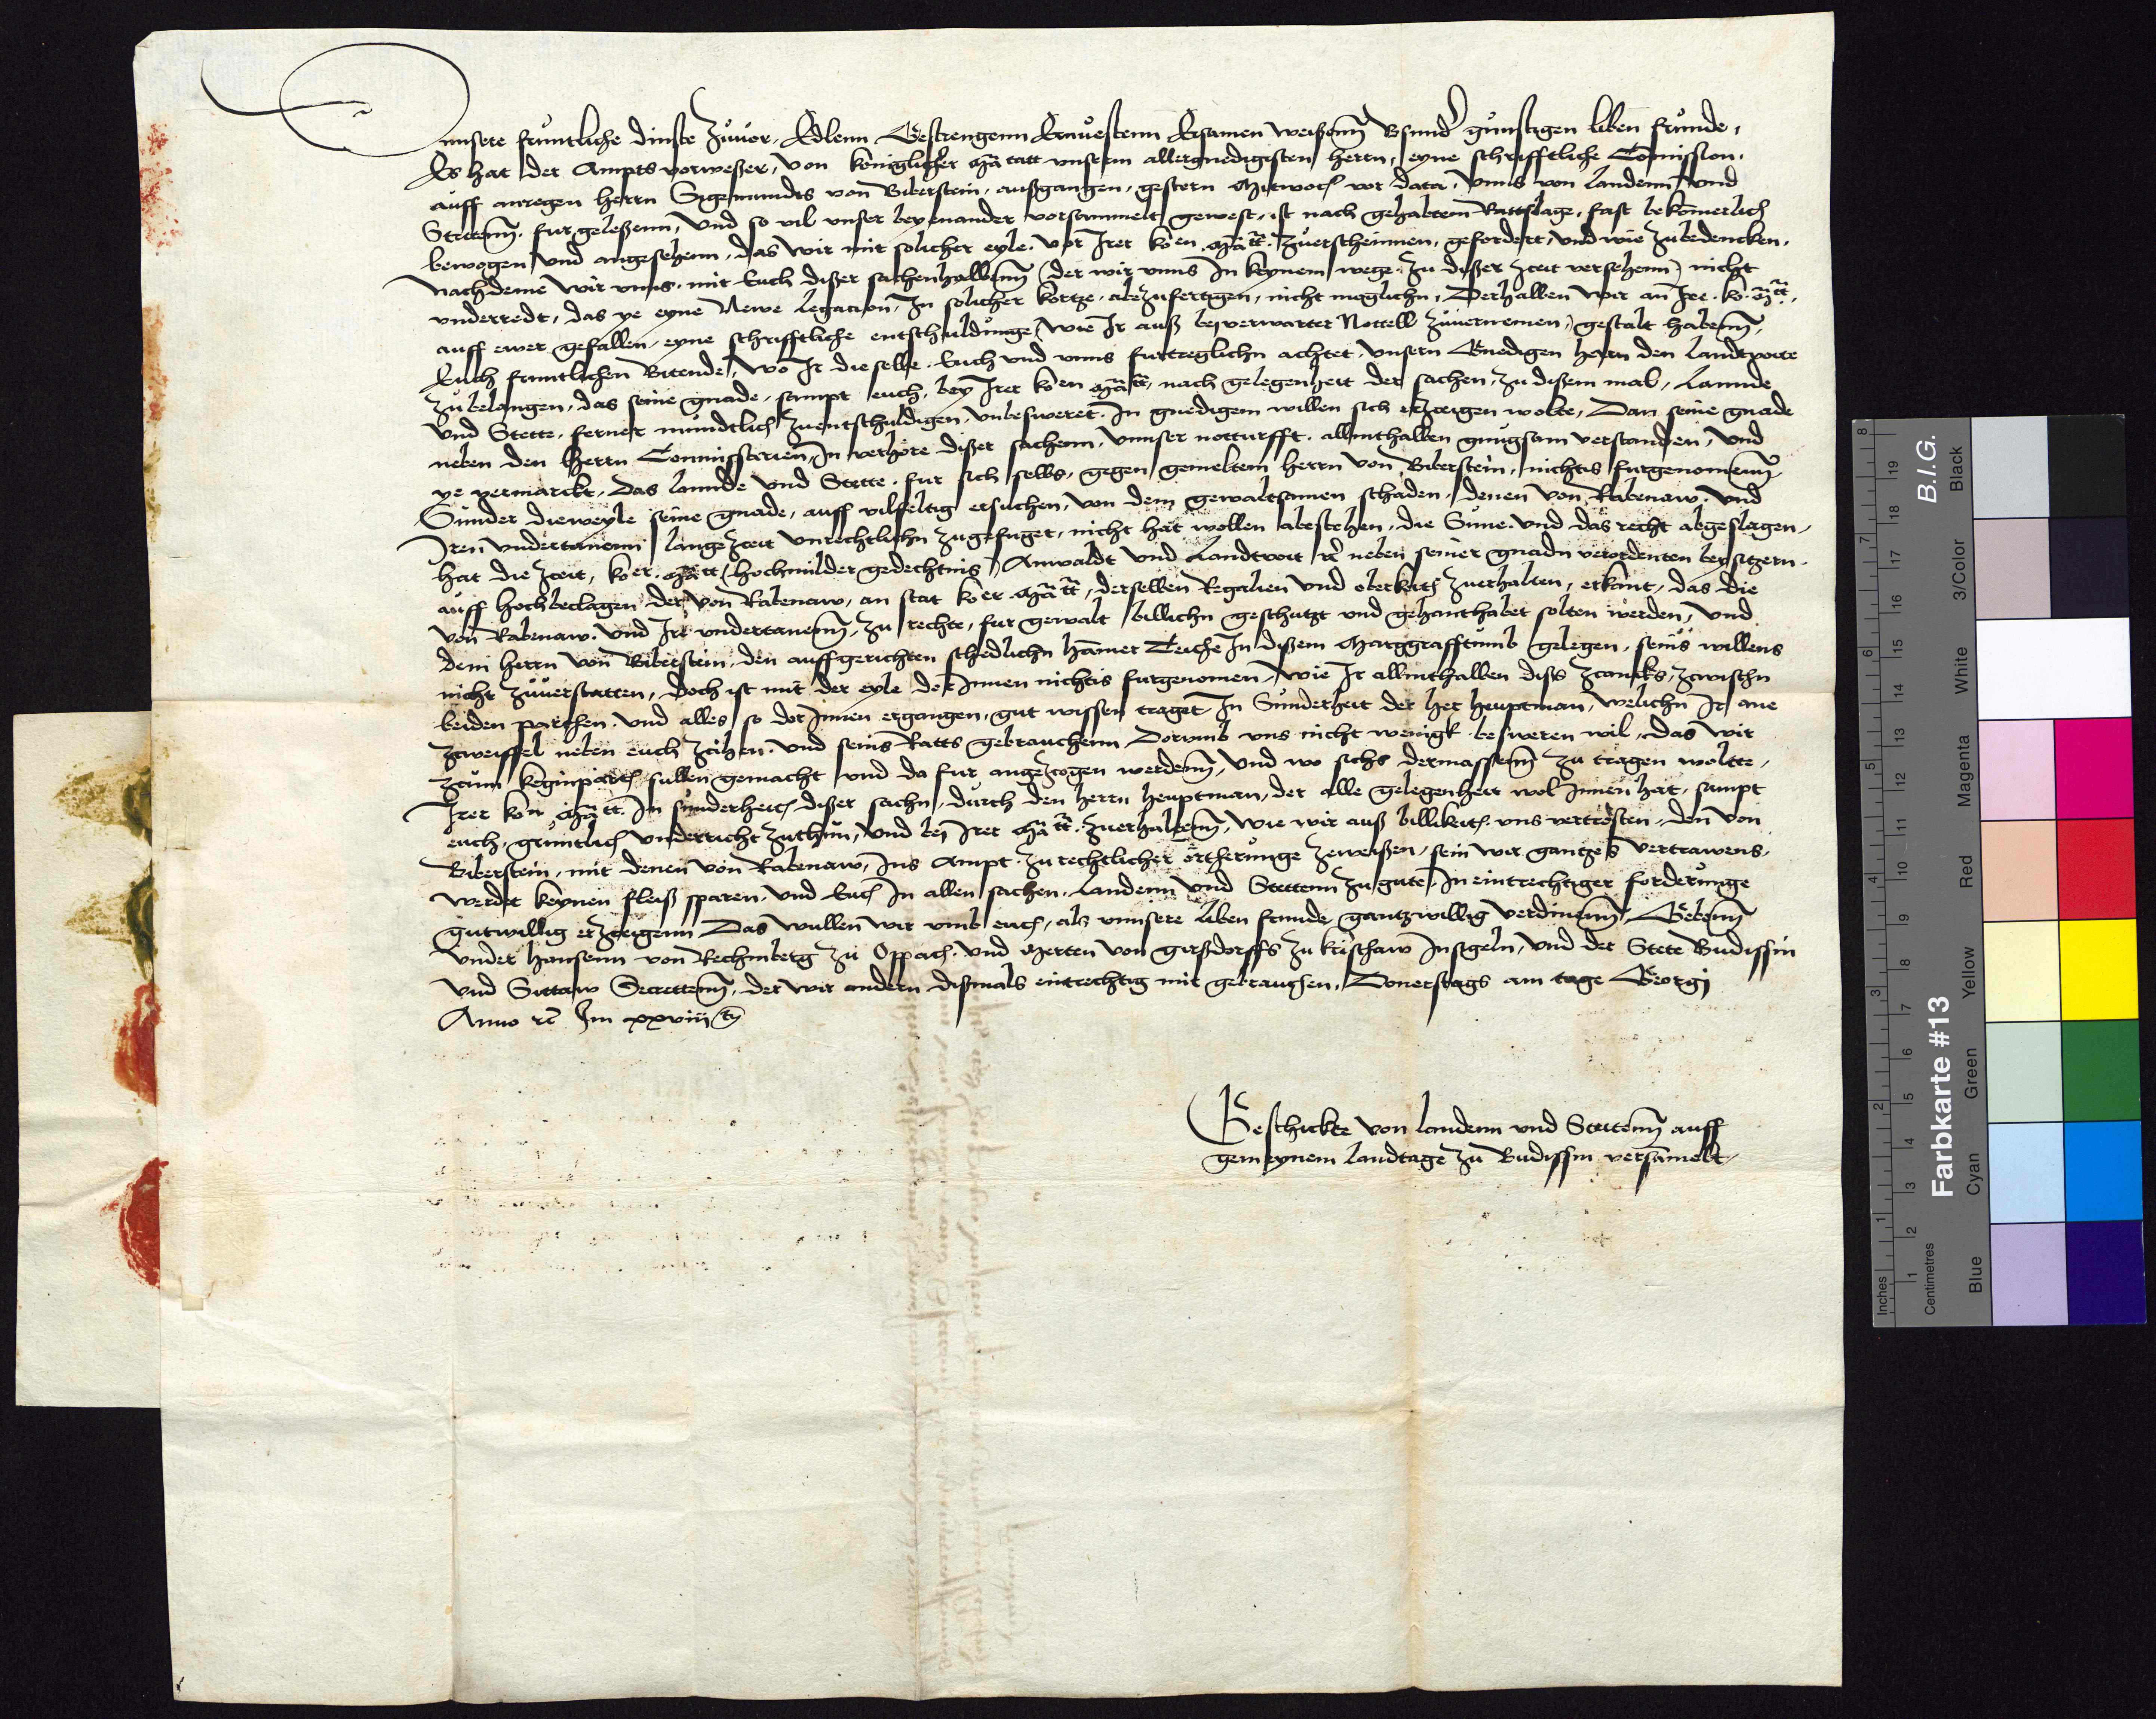 unsere fruntliche dinste zuuor, Edlenn Gestrengenn Ernuestenn Ersamen weißenn Bsund gunstigen liben frunde,
Es hat der Ampts vorweßer, von königlicher Ma tatt unserm allergnedigisten herrn, eyne schrifftliche Comission,
auff anregen herrn Sigemundts von Biberstein, außgangen, gestern Mitwoch vor data, vnns von landenn und
Stetenn, furgeleßenn, Und so vil unser beyenander vorsammelt gewest, ist nach gehabtem Rattslage, fast bekomerlich
bewogen und angesehenn, das wir mit solicher eyle, vor Irer koen Matt. zuerscheinnen, gefordert, und wie zubedencken,
nachdeme wir vnns, mit Euch dißer sachenhalbenn (der wir vnns In keynem wege zu dißer zceit versehenn) nicht
vnderredt, das ye eyne Newe legacion, In solicher kortze, abezufertigen, nicht muglichn, Derhalben wir an Ire. ko. Matt,
auff ewer gefallen, eyne schrifftliche entschuldunge (wie Ir auß beyverwarter Nottell zuuernemen) gestalt habenn,
Euch fruntlichen Bitende, wo Ir dieselbe, Euch und vnns furtreglichn achtet, unsern Gnedigen herrn den landtvoite
zubelangen, das seine gnade, sampt euch, bey Irer koen Matt, nach gelegenheit der sachen, zu dißem mal, lannde
und Stette, ferner mundtlich zuentschuldigen, unbesweret, In gnedigem willen sich erzceigen wolte, Dan seine gnade
neben den herrn Commissarien, In verhöre dißer sachenn, vnnser notturfft, allenthalben gnugsam verstanden, und
ye vermarckt, das lannde und Stette, fur sich selbs, gegen gemeltem herrn von Biberstein, nichtis furgenomenn,
Sunder dieweyle seine gnade, auff vilfeltig ersuchen, von dem gewaltsamen schaden, denen von Rabenaw, und
Iren vndertanenn lange zceit vnrechtlichn zugefuget, nicht hat wollen abestehen, die Sune und das recht abgeslagen,
hat die zceit, koer. Matt (hochmilder gedechtnis) Anwaldt und Landtvoit rc neben seiner gnadn verordenten beysitzern,
auff hochbeclagen der von Rabenaw, an stat koer Matt, derselben Regalien und oberkeit zuerhalten, erkant, das die
von Rabenaw, und Ire vndertanenn, zu rechte, fur gewalt billichn geschutzt und gehanthabet solten werden, und
dem herrn von Biberstein, den auffgerichten schedlichn hamer Teiche In dißem Marggrafftumb gelegen, seins willens
nicht zuuerstatten, Doch ist mit der eyle dorInnen nichtis furgenomen, wie Ir allenthalben dißs zcancks, zwischn
beiden parthen, und alles so dorInnen ergangen, gut wissen traget In Sunderheit der her heuptman, welichn Ir ane
zweiffel neben euch zcihen, und seins Ratts gebrauchenn Dorumb vns nicht wenigk besweren wil, das wir
zcum keginparth sullen gemacht und da fur angezcogen werdenn, und wo sichs dermassenn zu tragen woltte,
Irer kon Matt. In sunderheit, dißer sachn, durch den herrn heuptman, der alle gelegenheit wol Innen hat, sampt
euch, gruntlich vnderricht zuthun, und bey Irer Matt. zuerhaltenn, wie wir auß billikeit vns vertrösten, den von
Biberstein, mit denen von Rabenaw, Ins Ampt zu rechtlicher örtherunge zcweißen, sein wir gantzes vertrawens,
werdet keynen fleiß sparen, und Euch In allen sachen, landenn und Stettenn zu gute, In eintrechtiger forderunge
gutwillig erzceigenn Das wullen wir vmb euch, als vnnsere liben frunde gantzwillig verdinenn, Gebenn
vnder hansenn von Rechenberg zu Oppach, und Merten von girßdorffs zu krischaw Insigeln, und der Stete Budissin
und Sittaw Secrettenn, der wir andern dißmals eintrechtig mit gebrauchen, Donerstags am tage Georgi
Anno rc Im xxviii ten
Geschickte von landenn und Stetenn auff
gemeynem landtage zu Budissin versamelt
Inches
Centimetres
B.I.G.
Farbkarte #13
Blue
Cyan
Green
Yellow
Red
Magenta
White
3/Color
Black